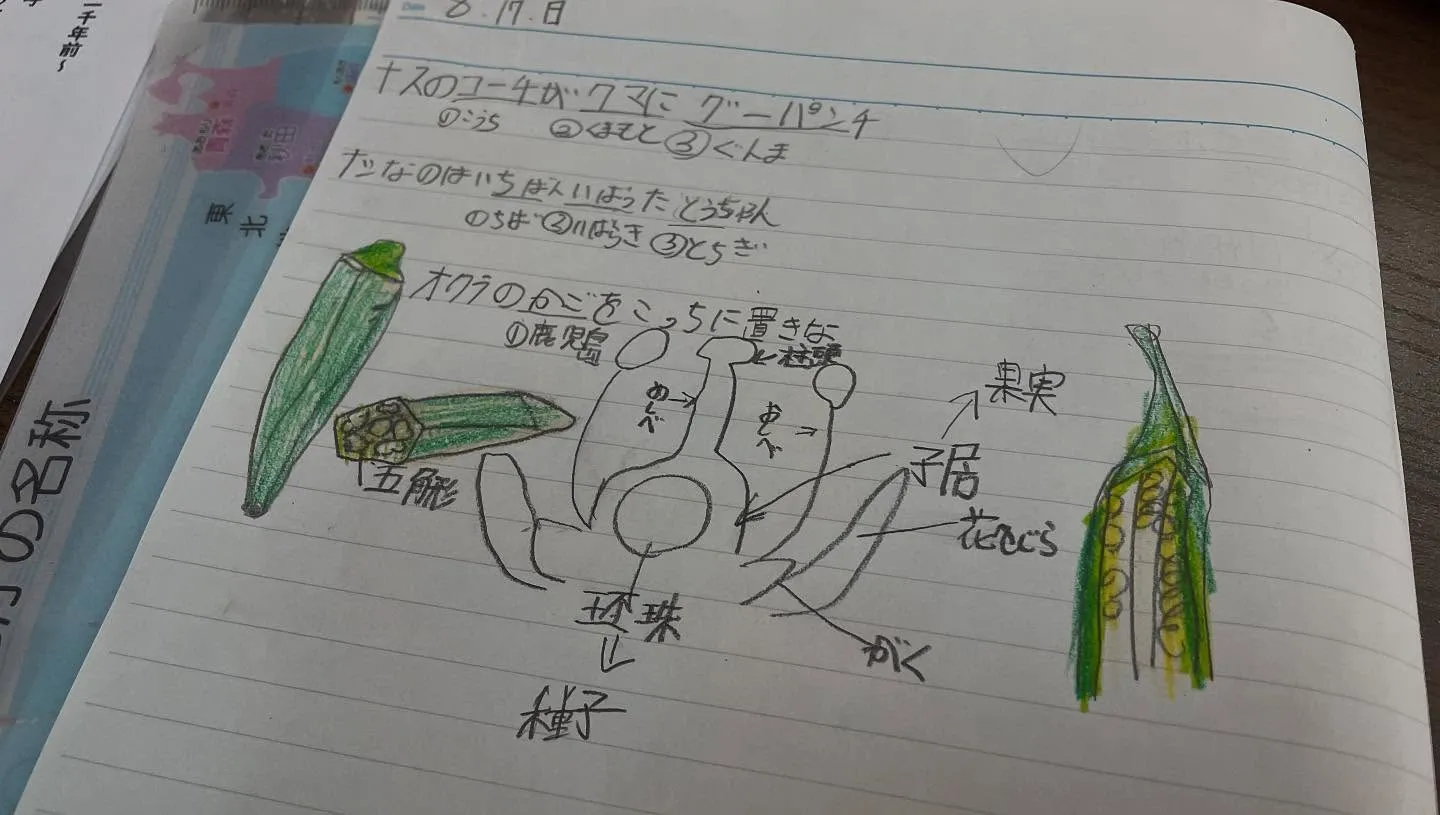 二千年前〜
青森
秋田
東北
の名称
8.17.日
ナスのコーチがクマにグーパンチ
①こうち ②くまもと ③ぐんま
ナンなのはいちばんいばったとうちゃん
①ちば ②いばらき ③とちぎ
オクラのかごをこっちに置きな
①鹿児島
柱頭
めしべ
おしべ
果実
子居
五角形
花びら
胚珠
がく
種子